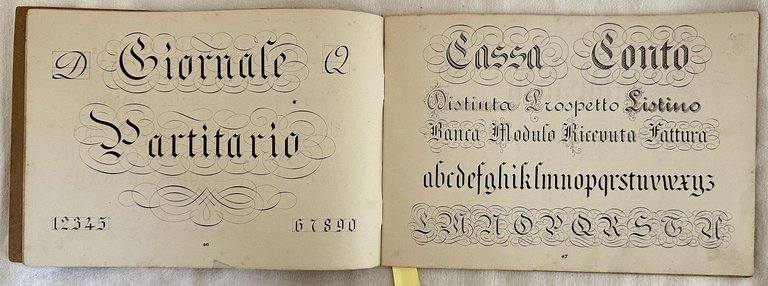 D Giornale Q
Partitario
12345 67890
46
Cassa Conto
Distinta Prospetto Listino
Banca Modulo Ricevuta Fattura
abcdefghiklmnopqrstuvwxyz
L M N O P Q R S T U
47